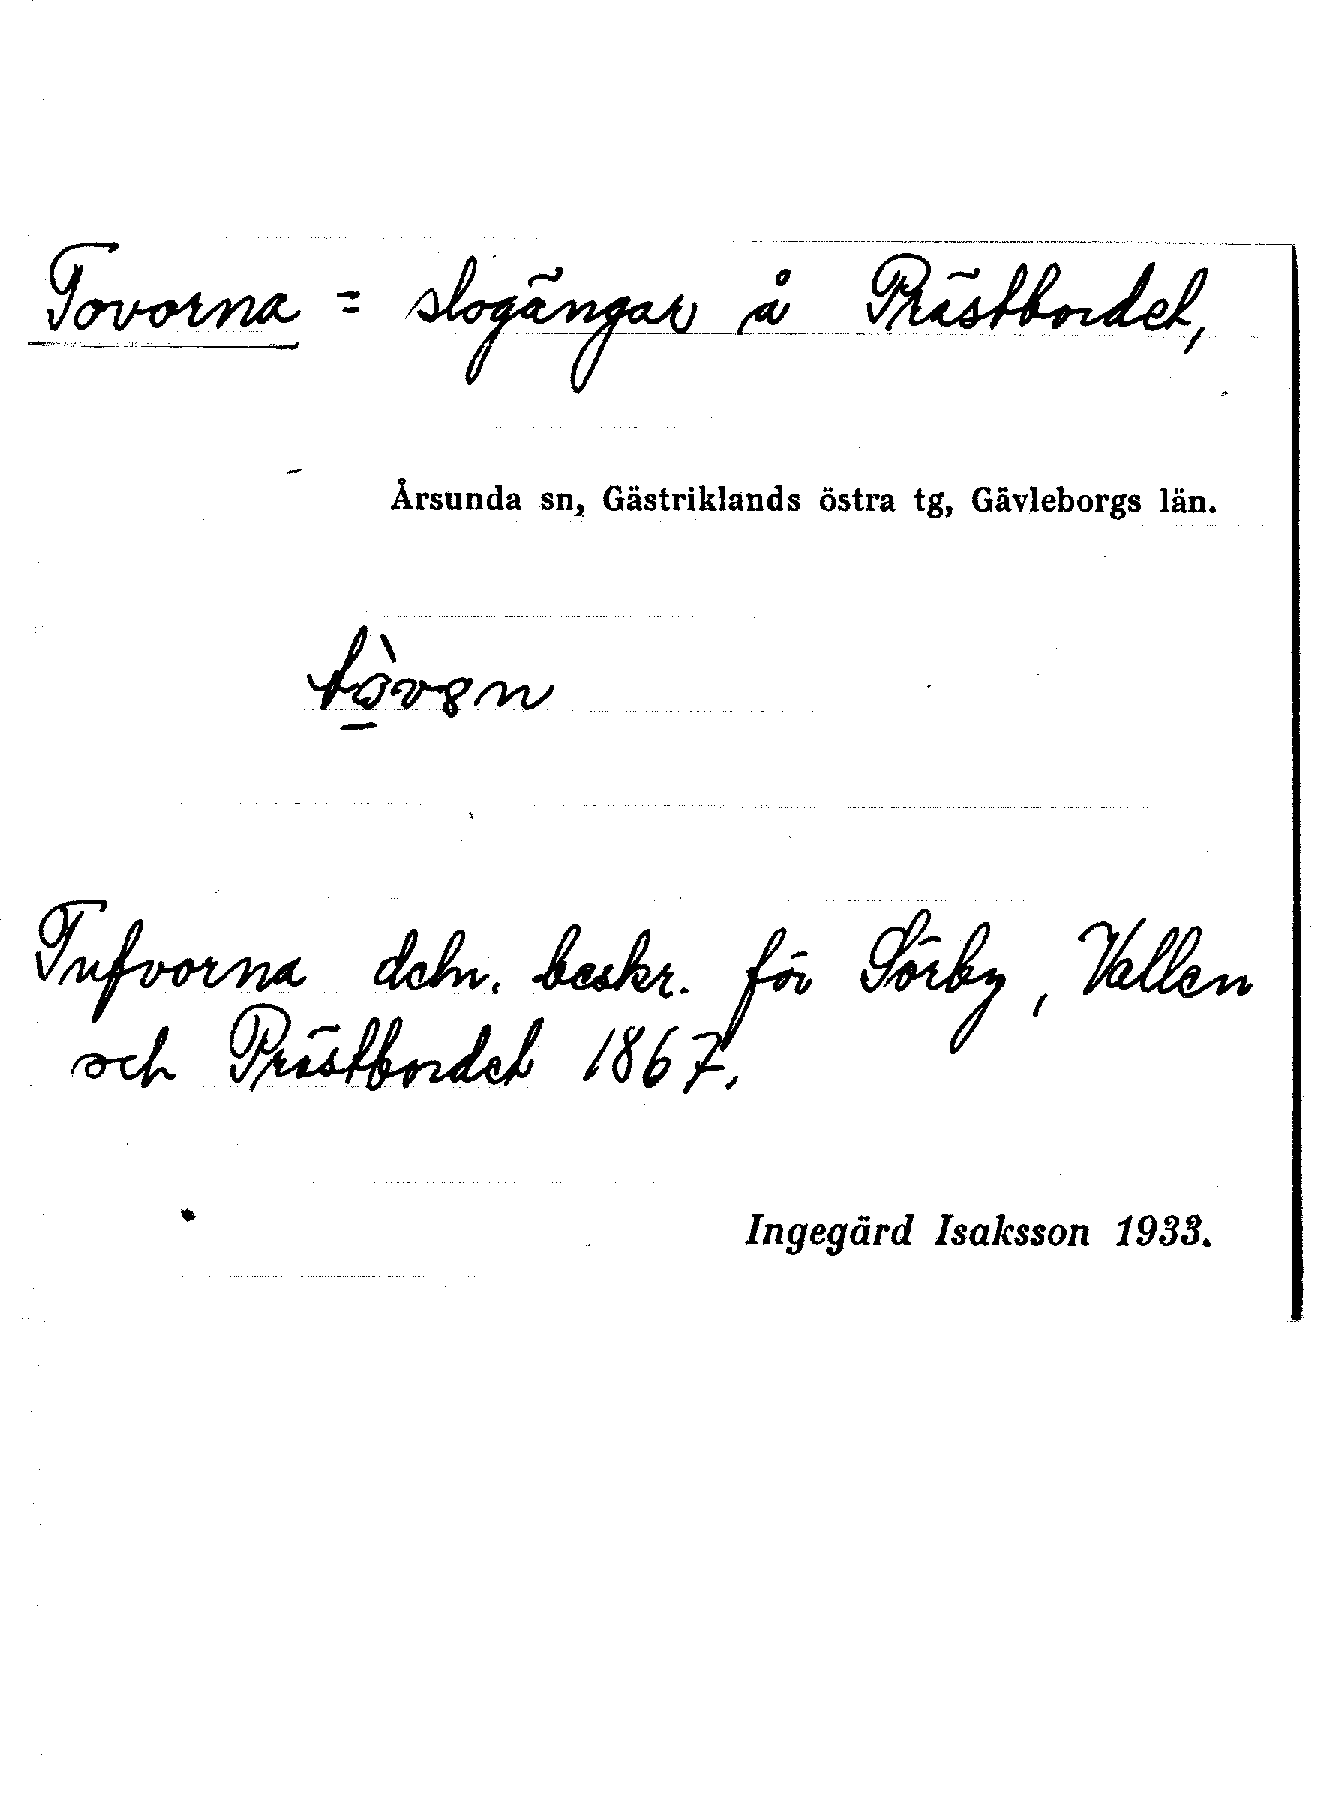 Tovorna = slogängar å Prästbordet,
Årsunda sn, Gästriklands östra tg, Gävleborgs län.
Tufvorna deln. beskr. för Sörby, Vallen
och Prästbordet 1867.
Ingegärd Isaksson 1933.